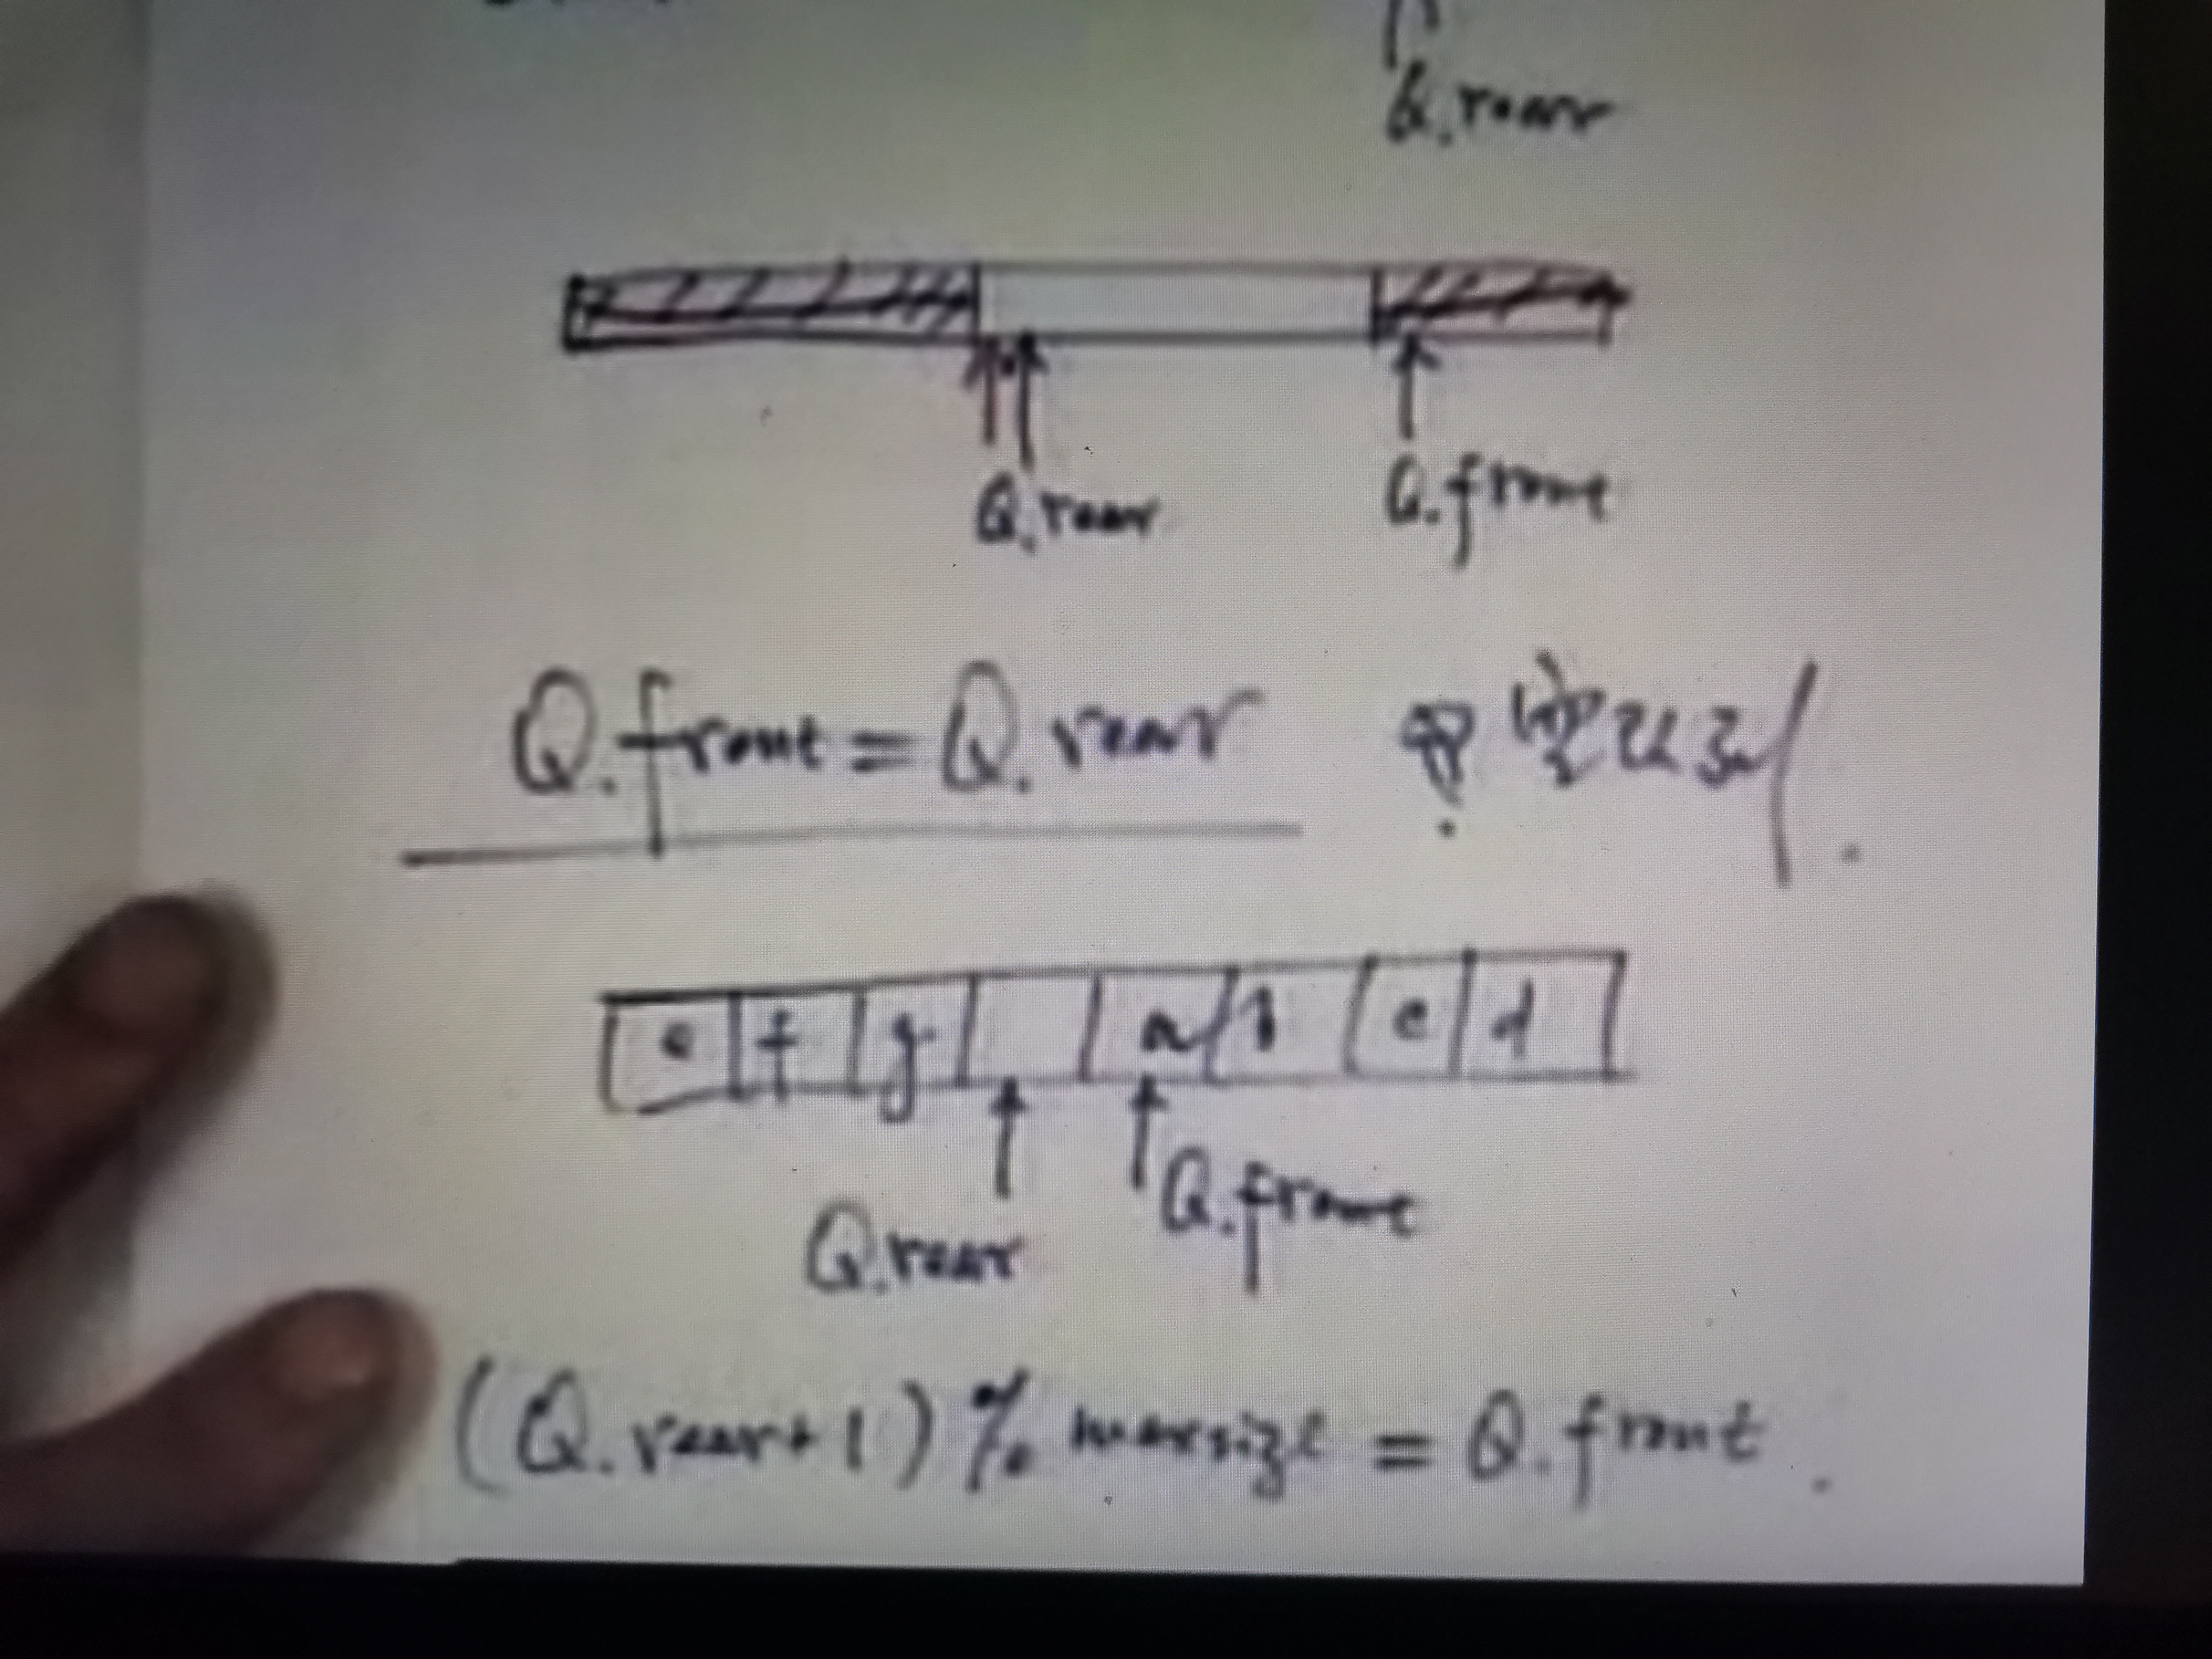 Q.rear
Q.rear
Q.front
Q.front = Q.rear
e f g a b c d
Q.rear
Q.front
(Q.rear+1) % maxsize = Q.front.